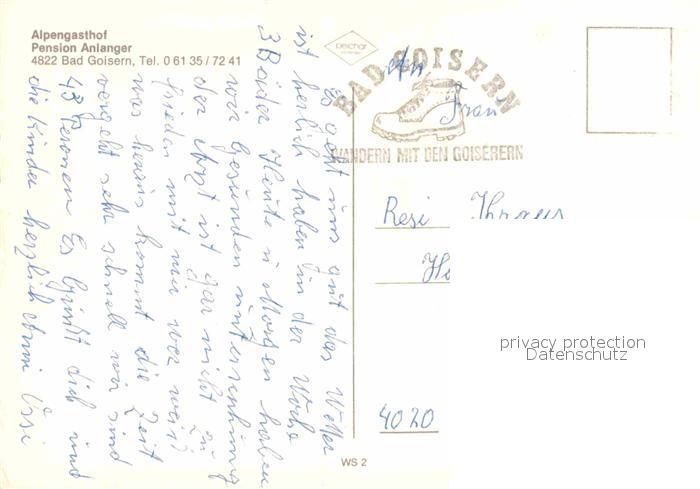 Alpengasthof
Pension Anlanger
4822 Bad Goisern, Tel. 0 61 35 / 72 41
Es geht uns gut das Wetter
ist herlich haben in der Woche
3 Bäder Heute u Morgen haben
wir Gesunden untersuchung
der Arzt ist gar nicht zu
frieden mit mir wer weis
was heraus kommt die Zeit
vergeht sehr schnell wir sind
43 Personen Es Grüßt dich und
die Kinder herzlich Anni Ossi
peichar
BAD GOISERN
WANDERN MIT DEN GOISERERN
An
Frau
Resi
4020
privacy protection
Datenschutz
WS 2